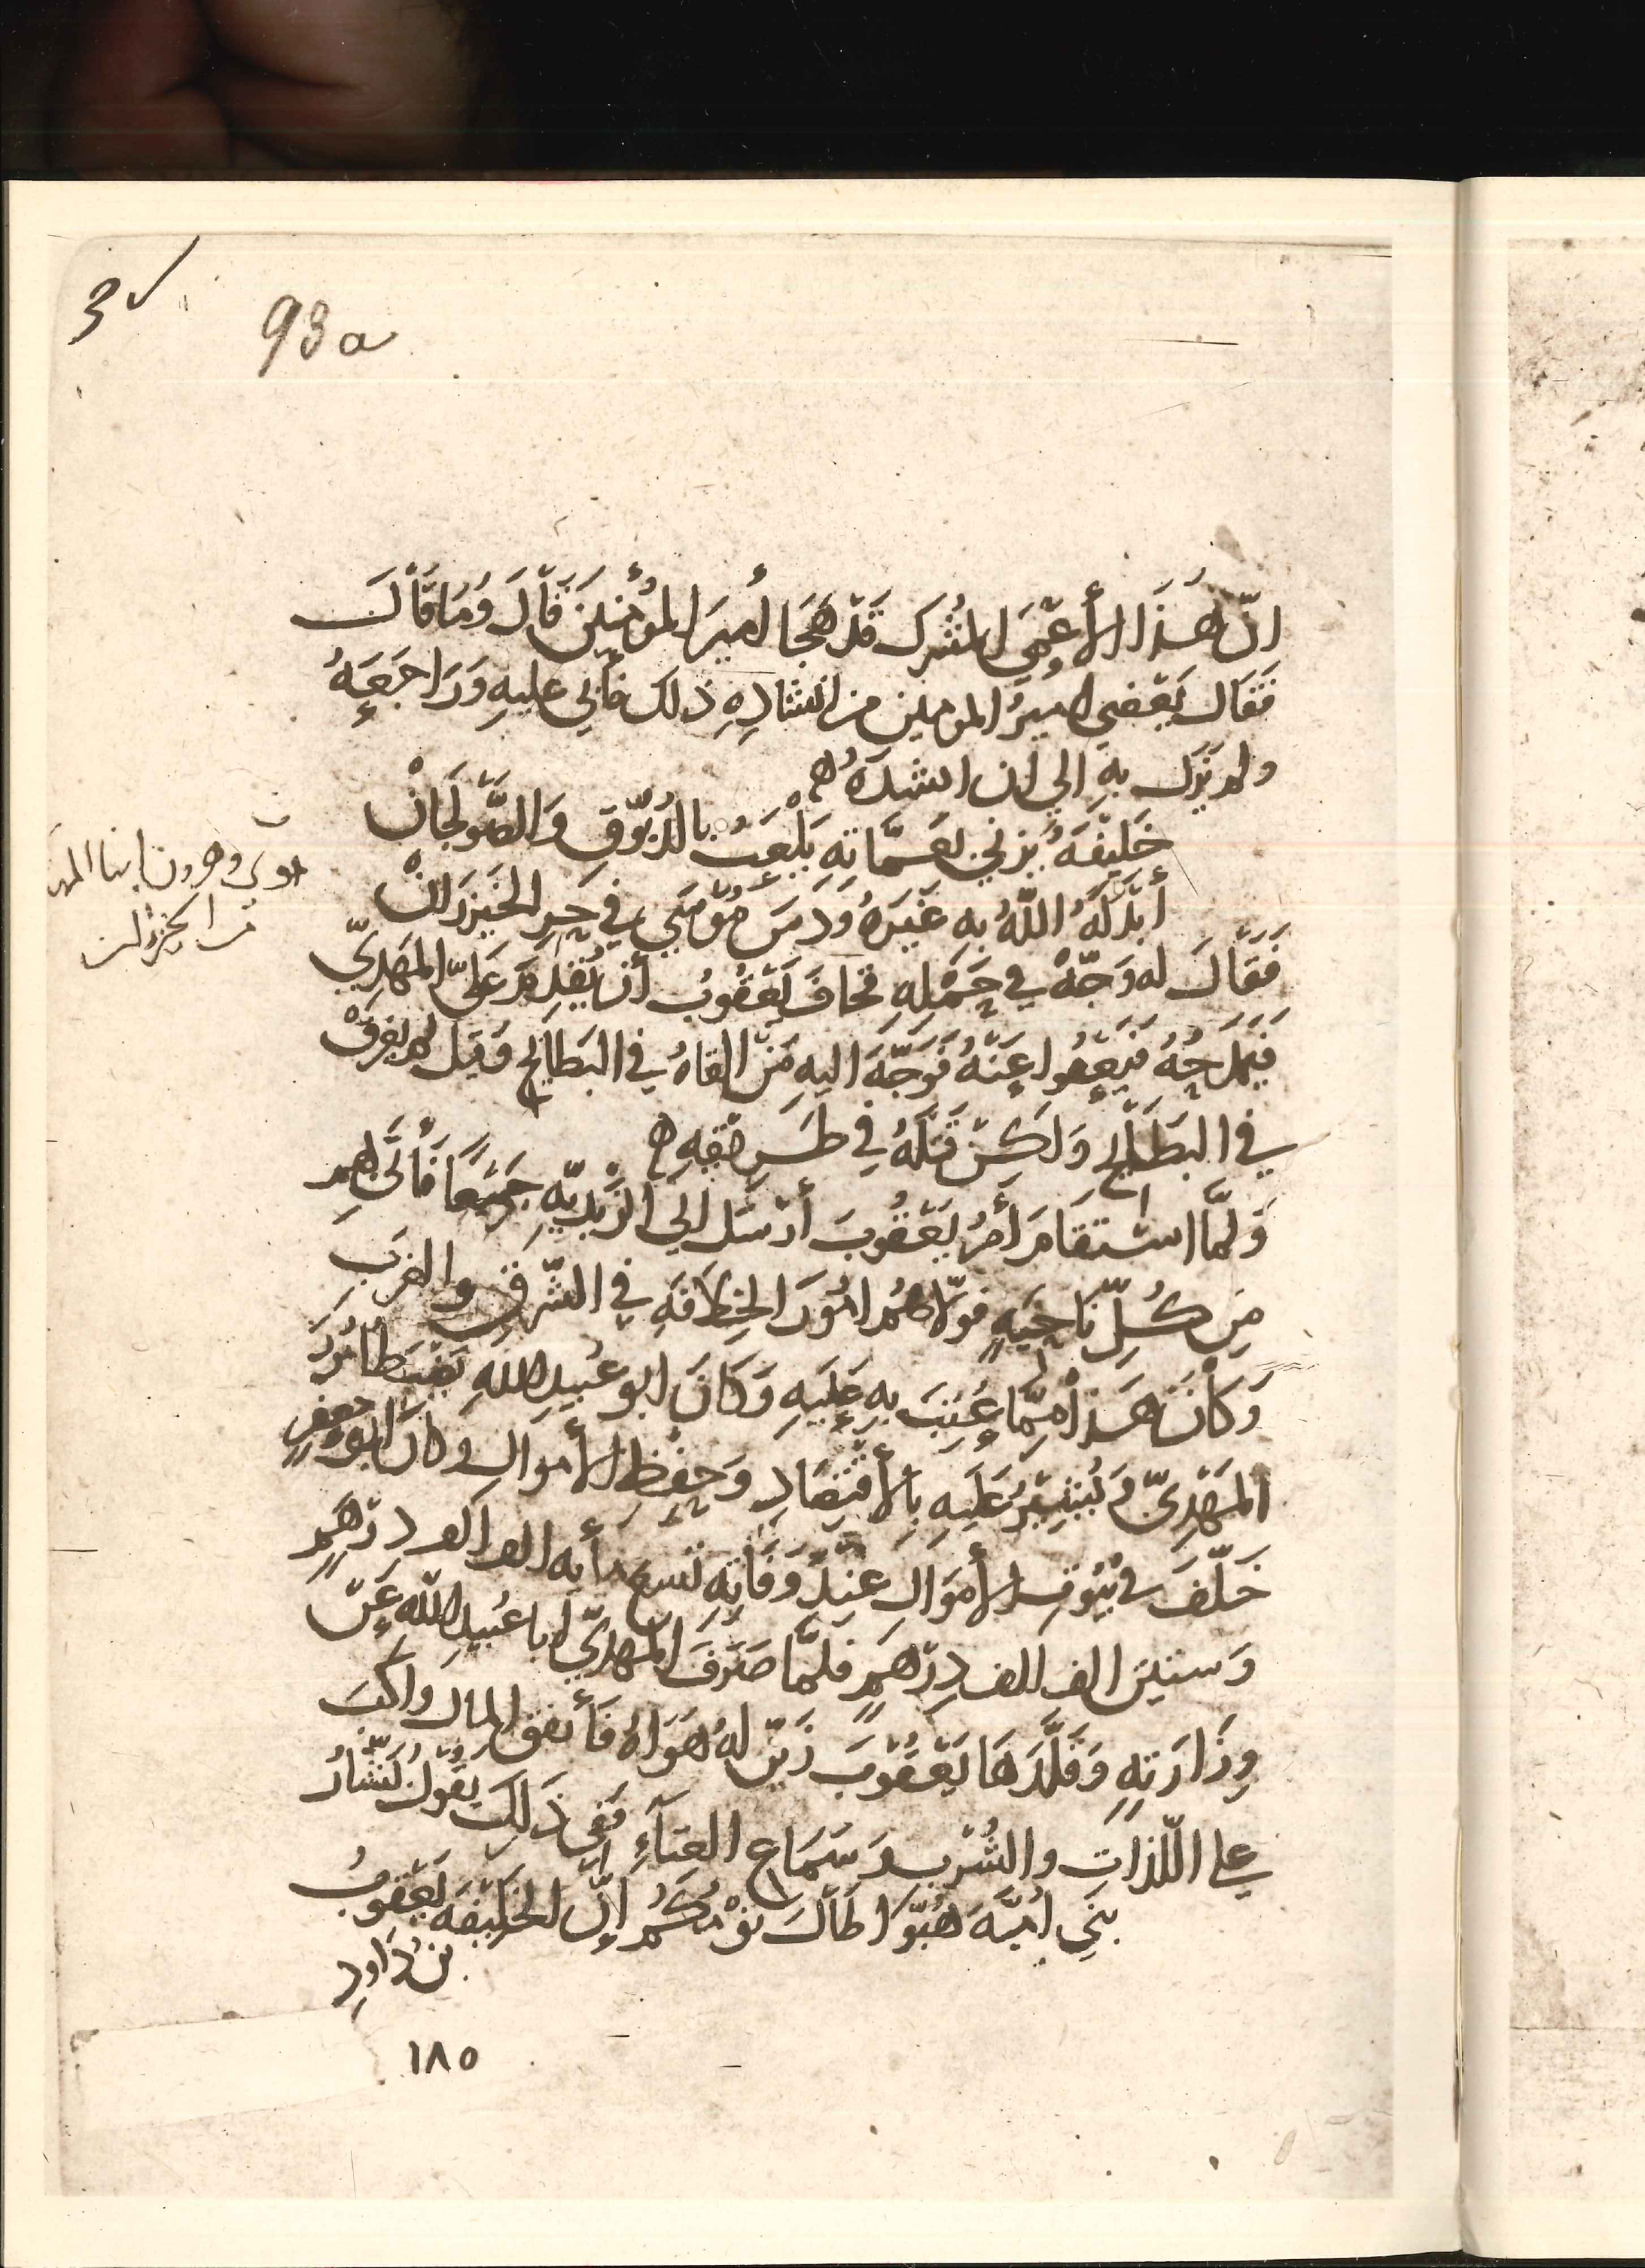 3
93a
انّ هَذَا الأَعْمَى المُشْرِك قَدْ هَجَا أَمِيرَ المُؤْمِنِينَ فَقَالَ وَمَا قَالَ
فَقَال يَعْفِينِي امِيرُ المومنين من انشادِهِ ذلك فأبي عليهِ وَرَاجَعَهُ
ولم يزل بهِ الي ان انشدَهُ
خَلِيْفَةٌ يَزْنِي بِعَمَّاتِهِ يَلْعَبُ بالدُبّوْقِ وَالصَّوْلَجَانْ
أَبْدَلَهُ اللّهُ بِهِ غَيْرَهُ وَدَسَّ مُوْسَى فِي حَرِ الخَيْزرَانْ
موسى وهرون ابنا المهدى
من الخيزران
فَقَالَ له وَجّهْ في حَمْلِهِ فخافَ يَعْقُوبُ أن يُقْدِمَ عَلَى المَهْدِيّ
فَيَمْدَحُهُ فَيَعْفُوا عَنْهُ فَوَجَّهَ اليهِ مَنْ القاهُ في البَطَايِحِ وَقيل لم يغرقْ
في البَطَايِحِ وَلَكِنْ قَتَلَهُ فِي طَرِيْقِهِ
وَلَمَّا اسْتقَامَ أَمْرُ يَعْقُوبَ أَرْسَل الي الزيْدِيّهِ جَمِيْعًا فَأَتَى بِهِم
مِن كُلِّ نَاحِيَهٍ فولّاهُم امُورَ الخِلافَهِ فِي الشّرقِ والغربِ
وَكَانَ هَذا مِمّا عُيِبَ بِهِ عَلَيهِ وَكَانَ ابو عُبيدِ اللهِ يَضْبط امُورَ
المَهْدِيّ وَيُشِيْرُ عَلَيهِ بِالأقْتِصَادِ وَحِفْظِ الأموَالِ وكانَ ابو جعفرٍ
خَلّفَ في بُيُوتِ الأَموَالِ عِنْدَ وَفَاتِهِ تسع مأيه الف الف دِرْهَمٍ
وَستينَ الف الف دِرْهَمٍ فلمَّا صَرَفَ المهدِيّ ابا عُبيدِ اللهِ عَنْ
وِزَارَتِهِ وَقَلَّدَهَا يَعْقُوْبَ زَيّنَ لهُ هَوَاهُ فَأنفق المال واكبّ
علي اللّذاتِ والشُرْبِ وَسَمَاعِ الغناءِ فَفِي ذَلِكَ يقولُ بَشّارُ
بَنِي اُميَّهَ هُبّوا طَالَ نَوْمُكُم اِنّ الخَلِيْفَهَ يَعْقُوبُ
بن دَاودِ
١٨٥